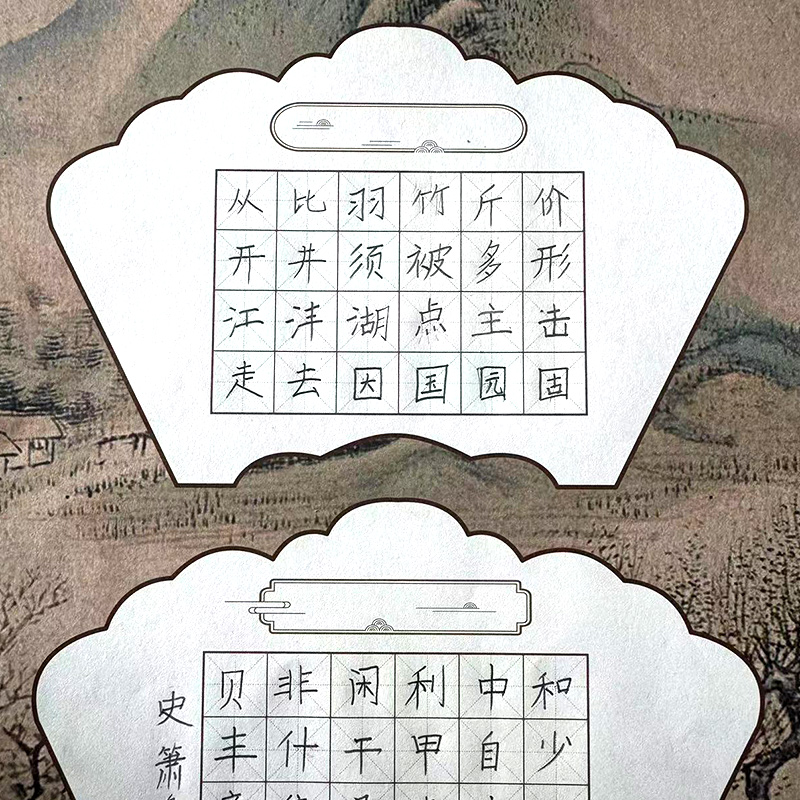 从比羽竹斤价
开井须被多形
江沣湖点主击
走去因国园固
贝非闲利中和
丰什干甲自少
史箫